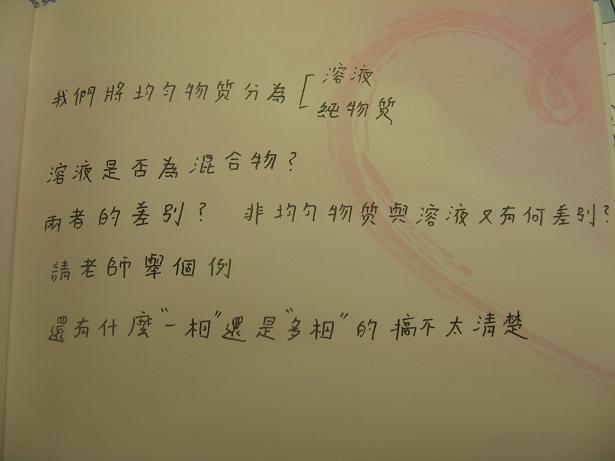 我們將均勻物質分為[溶液
純物質
溶液是否為混合物?
兩者的差別? 非均勻物質與溶液又有何差別?
請老師舉個例
還有什麼"一相"還是"多相"的搞不太清楚